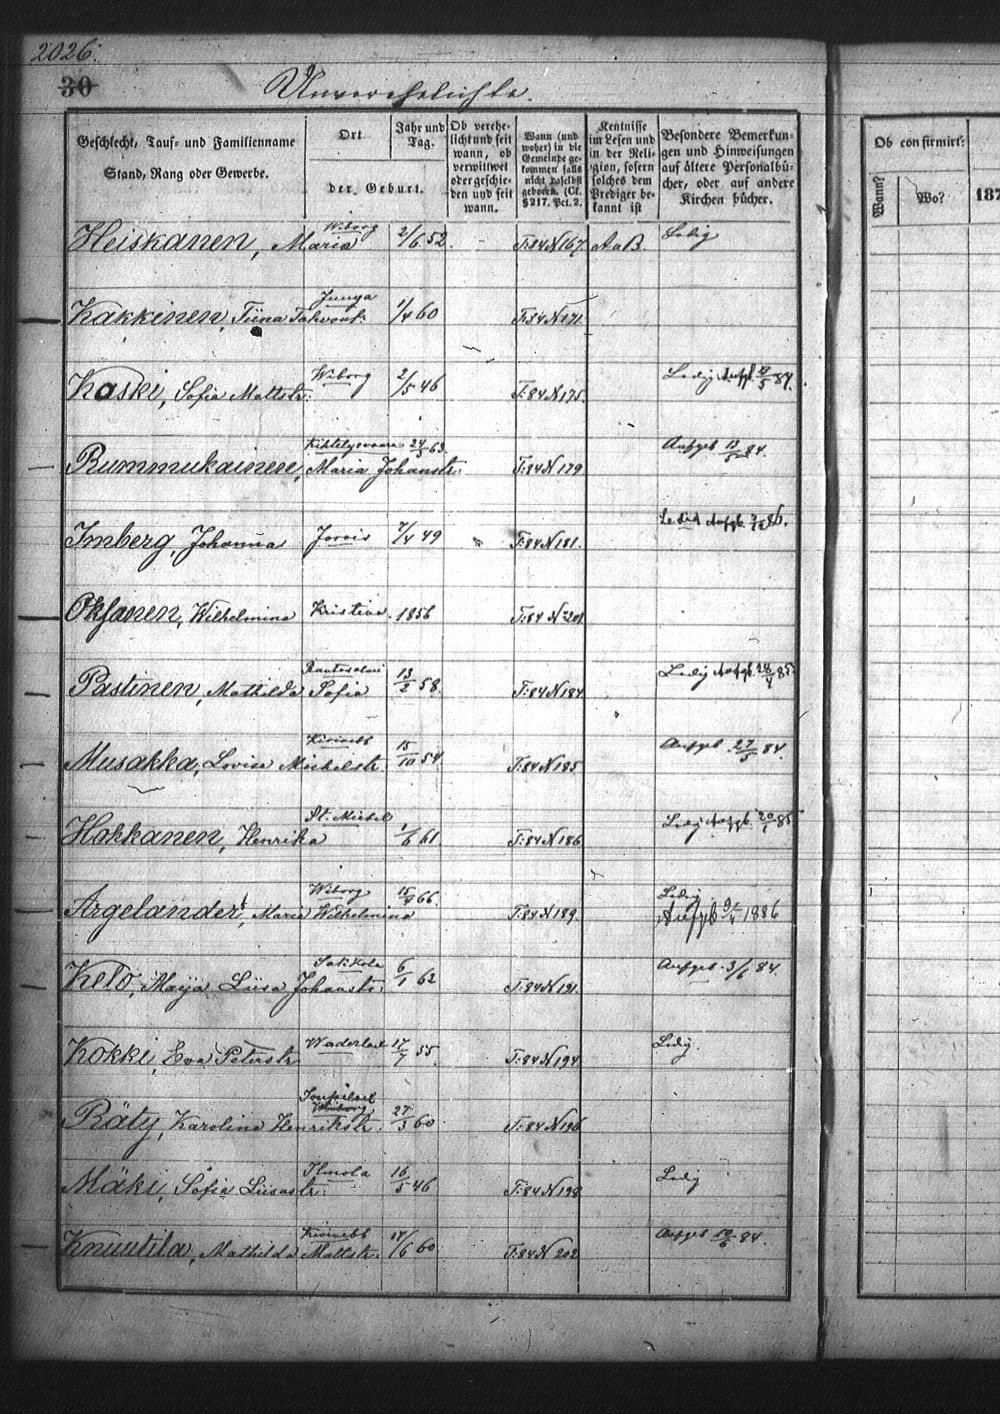 2026.
30
Unverehelichte.
Geschlecht, Tauf- und Familienname
Stand, Rang oder Gewerbe.
Ort
der Geburt.
Jahr und
Tag.
Ob verehe-
licht und seit
wann, ob
verwittwet
oder geschie-
den und seit
wann.
Wann (und
woher) in die
Gemeinde ge-
kommen falls
nicht daselbst
geboren. (Cf.
§ 217. Pct. 2.
Kentnisse
im Lesen und
in der Reli-
gion, sofern
solches dem
Prediger be-
kannt ist
Besondere Bemerkun-
gen und Hinweisungen
auf ältere Personalbü-
cher, oder auf andere
Kirchen bücher.
Ob confirmirt:
Wann?
Wo?
187
Heiskanen, Maria Wiborg 2/6 52. T:84 N 167. A u B. Ledig
Kakkinen, Tiina Tahvont: 1/4 60 T:84 N 171.
Kaski, Sofia Mattstr: Wiborg 2/5 46 T:84 N 175. Ledig Aufgb /5 84.
Rummukainen, Maria Johanstr: Kihtelysvaara 24/3 63. T:84 N 179 Aufgeb 13/5 84.
Imberg, Johanna Jorois 7/4 49 T:84 N 181. Ledig Aufgb.
Oksanen, Wilhelmina Kristina. 1856 T:84 N 201
Pastinen, Mathilda Sofia Rantasalmi 13/2 58. T:84 N 184 Ledig Aufgb. 28/4 85.
Musakka, Lovisa Michelstr. Kivinebb 15/10 54 T:84 N 185 Aufgeb 27/5 84.
Hakkanen, Henrika St. Michel 1/6 61. T:84 N 186 Ledig Aufgb. 20/1 85
Argelander, Maria Wilhelmina Wiborg 15/4 66. T:84 N 189. Ledig
Aufgb 9/4 1886
Kelo, Maija Liisa Johanstr: Sakkola 6/1 62 T:84 N 191. Aufgeb. 3/6 84.
Kokki, Eva Peterstr 17/7 55. T:84 N 194 Ledig.
Räty, Karolina Henrikstr. Wiborg 27/3 60. T:84 N 196
Mäki, Sofia Liisastr: Ilmola 16/5 46 T:84 N 198 Ledig
Knuutila, Mathilda Mattstr. Kivinebb 14/6 60. T:84 N 202 Aufgeb /6 84.